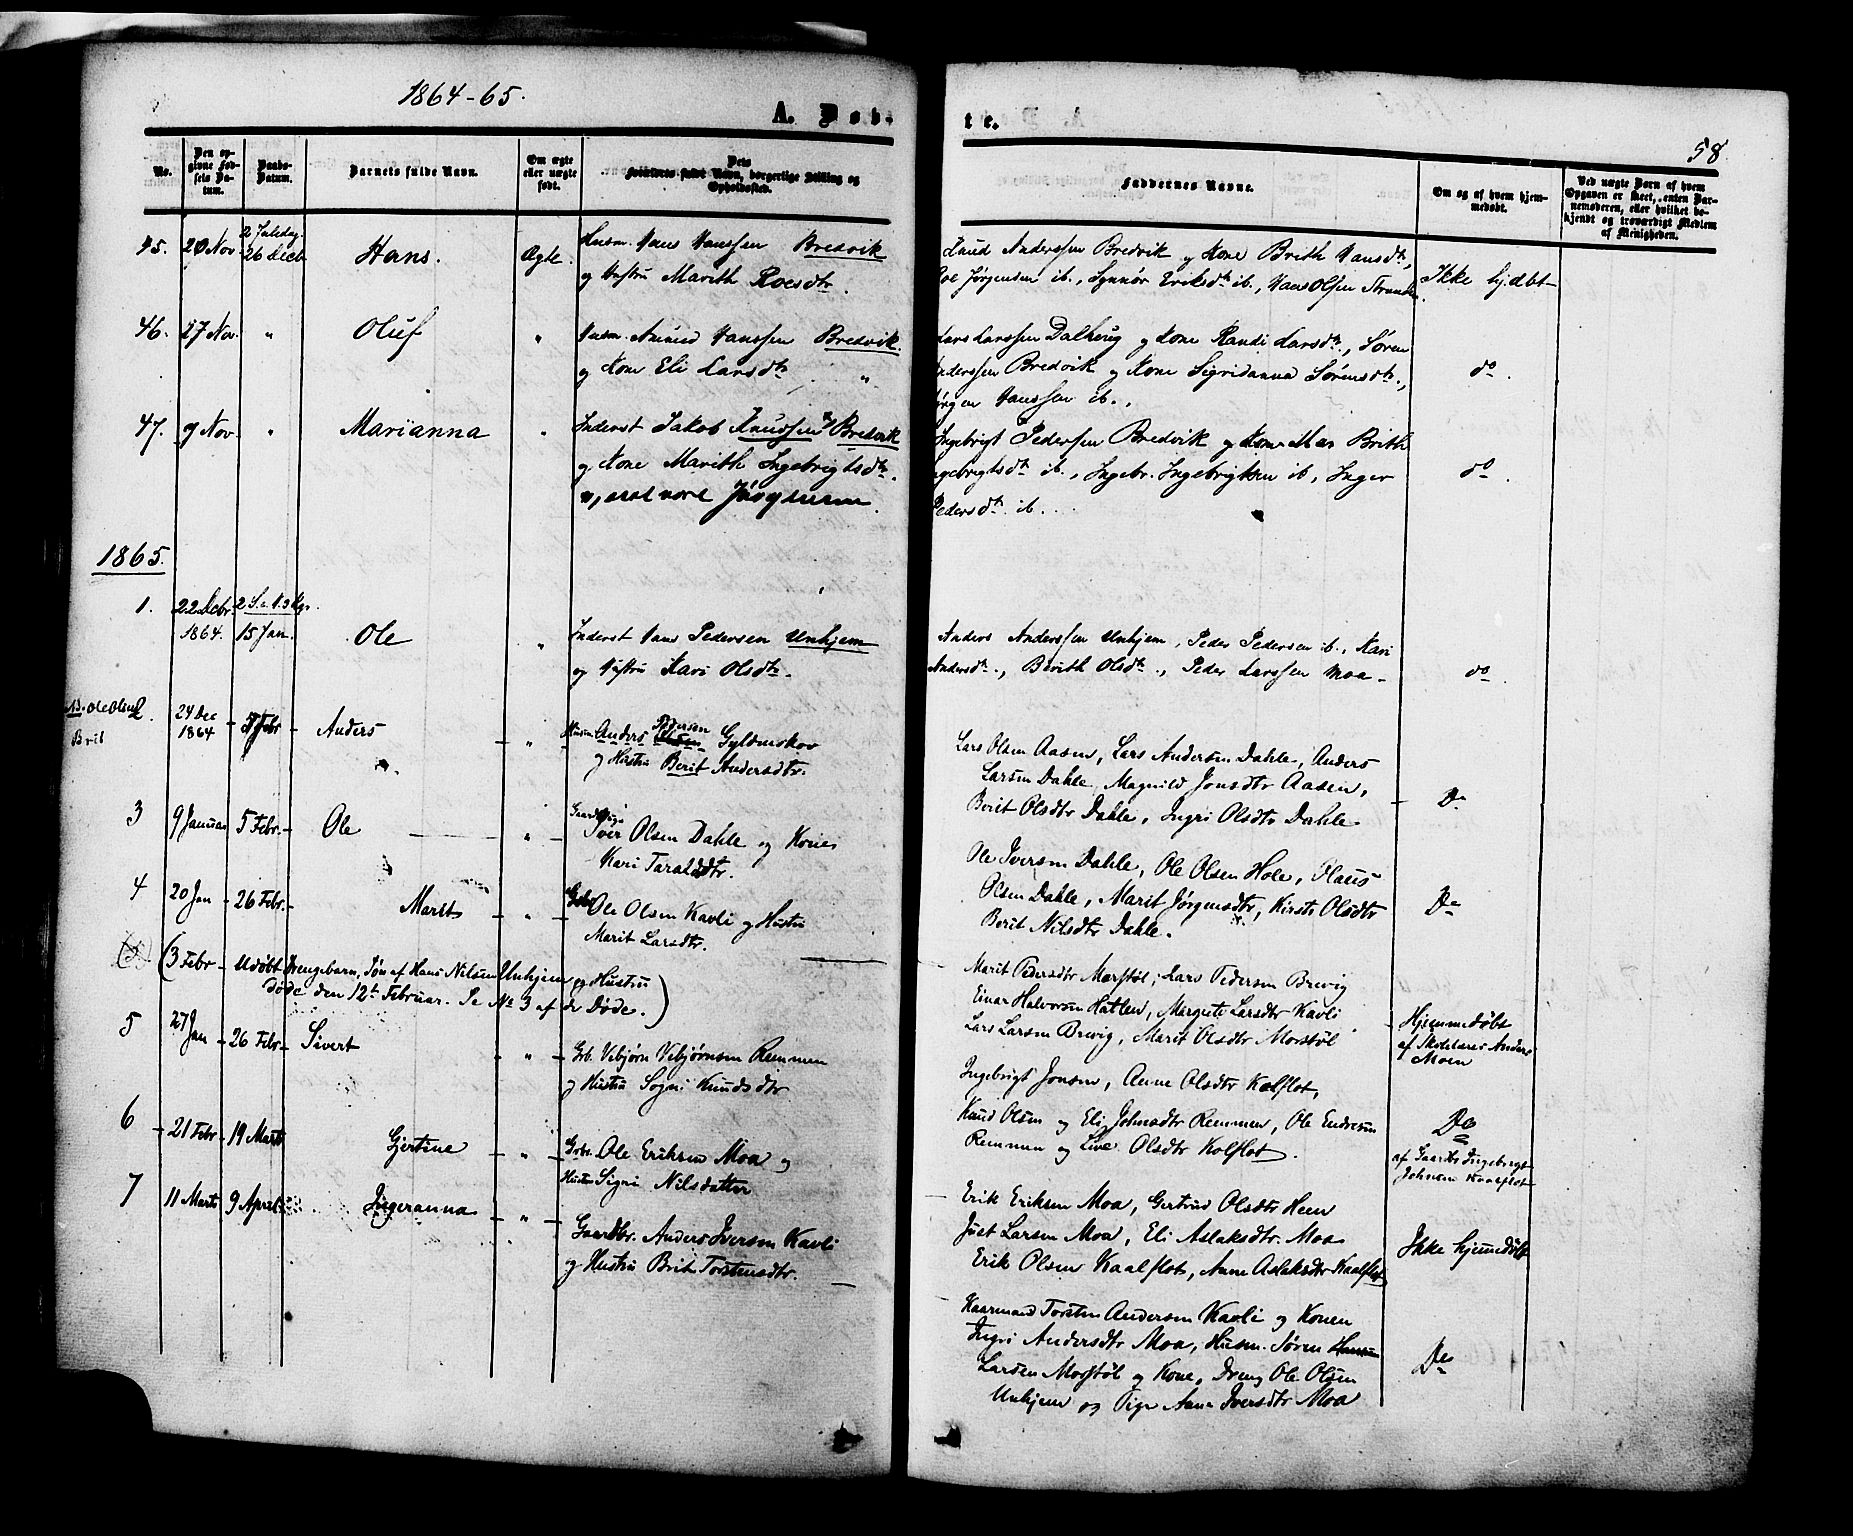 1864-65.
A. Døb-
te.
58.
No.
Den op-
givne Fød-
sels Da-
tum.
Daabs-
Datum.
Barnets fulde Navn.
Om ægte
eller uægte
født.
Dets
Forældres fulde Navn, borgerlige Stilling og
Opholdssted.
Faddernes Navne.
Om og af hvem hjem-
medøbt.
Ved uægte Børn af hvem
Opgaven er skeet, enten Bar-
nemoderen, eller hvilket be-
kjendt og troværdigt Medlem
af Menigheden.
45. 20 Nov 2 Juledag
26 Decb Hans. Ægte. Husm. Hans Hanssen Bredvik
og Hustru Marith Roesdtr.
Knud Anderssen Bredvik og Kone Brith Hansdtr,
Roe Jørgensen ib., Synnør Eriksdtr ib., Hans Olsen
Ikke hjdbt
46. 27 Nov. " Oluf " Husm. Amund Hanssen Bredvik.
og Kone Eli Larsdtr "
Lars Larssen Dalhoug og Kone Randi Larsdtr., Søren
Anderssen Bredvik og Kone Sigridanna Sørensdtr.,
Jørgen Hanssen ib..
do.
47. 9 Nov. " Marianna " Inderst Jakob Knudsen Bredvik
og Kone Marith Ingebrigtsdtr.
Jørgensen.
Ingebrigt Pedersen Bredvik og Kone Mar Brith
Ingebrigtsdtr ib., Ingebr. Ingebrigtsen ib, Inger
Pedersdtr ib.
do.
1865.
1. 22 Decbr. 1864. 2 S. e. H. 3 Kgr.
15 Jan. Ole " Inderst Hans Pedersen Unhjem
og Hustru Kari Olsdtr.
Anders Anderssen Unhjem, Peder Pedersen ib., Kari
Andersdtr., Berith Olsdtr., Peder Larssen Moa-
do.
NB. Ole Olsen
Brit
2. 24 Dec
1864 - 5 Febr - Anders - " Husm Anders Pedersen Olsen Gyldenskov
og Hustru Berit Andersdtr.
Lars Olsen Aasen, Lars Andersen Dahle, Anders
Larsen Dahle, Magnild Jonsdtr Aasen,
Berit Olsdtr Dahle, Ingri Olsdtr Dahle.
Do
3 9 Januar 5 Febr. - Ole - " - Gaardbrugr
Iver Olsen Dahle og Kone
Kari Taraldsdtr.
Ole Iversen Dahle, Ole Olsen Hole, Olaus
Olsen Dahle, Marit Jørgensdtr, Kirsti Olsdtr
Berit Nilsdtr Dahle.
Do
4 20 Jan - 26 Febr. - Marit - " - Gbr Ole Olsen Kavli og Hustru
Marit Larsdtr.
Marit Pedersdtr Morstøl, Lars Pedersen Brevig
Einar Halvorsen Hatlen, Margrete Larsdtr Kavli
Lars Larsen Brevig, Marit Olsdtr Morstøl
Hjemmedøbt
af Skolelærer Anders
Moen
(5) (3 Febr - Udøbt Drengebarn, Søn af Hans Nilsen Unhjem og Hustru
døde den 12te Februar. Se No 3 af de Døde.)
5 27 Jan - 26 Febr - Sivert - " - Gbr. Vebjørn Vebjørnsen Remmen
og Hustru Sogni Knudsdtr
Ingebrigt Jonsen, Anne Olsdtr Kolflot,
Knud Olsen og Eli Johnsdtr Remmen, Ole Endresen
Remmen og Line Olsdtr Kolflot.
Do
af Gaardbr Ingebrigt
Johnsen Kaalflot
6 - 21 Febr - 19 Marts Gjertine - " - Gbr. Ole Eriksen Moa og
Hustru Sigri Nilsdatter
Erik Eriksen Moa, Gertrud Olsdtr Heen
Juet Larsen Moa, Eli Aslaksdtr. Moa
Erik Olsen Kaalflot, Anne Aslaksdtr Kaalflot
Ikke hjemmedøbt
7 11 Marts 9 April Ingeranna - " - Gaardbr. Anders Iversen Kavli
og Hustru Brit Torstensdtr.
Kaarmand Torsten Andersen Kavli og Konen
Ingri Andersdtr Moa, Husm. Søren
Larsen Morstøl og Kone, Dreng Ole Olsen
Unhjem og Pige Anne Iversdtr Moa
Do